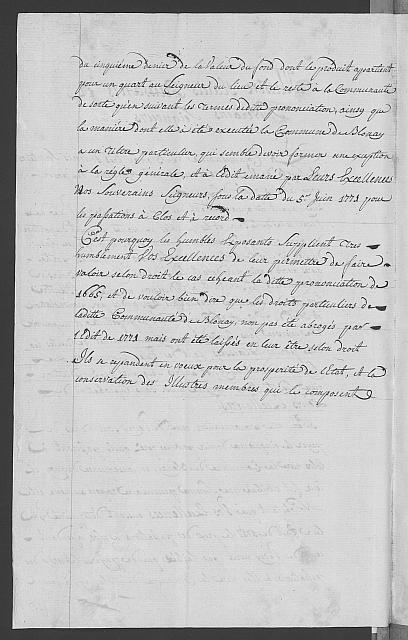 du cinquième denier de la Valeur du fond dont le produit appartient
pour un quart au Seigneur du lieu et le reste à la Communauté
de sorte qu'en suivant les termes de dite prononciation, ainsy que
la manière dont elle a été executée la Commune de Blonay
a un titre particulier, qui semble devoir former une exeption
à la règle générale, et à l'edit émané par Leurs Excellences
Nos Souverains Seigneurs, sous la date du 5e Juin 1771 pour
les passations à Clos et à record
C'est pourquoy les humbles Exposants Suplient tres
humblement Vos Excellences de leur permettre de faire
valoir selon droit le cas échéant la dette prononciation de
1665, et de vouloir bien dire que les droits particuliers de
leditte Communauté de Blonay, non pas été abrogés par
l'Edit de 1771 mais ont été laissés en leur être selon droit
Ils se repandent en vœux pour la prosperité de l'Etat, et la
conservation des Illustres membres qui le composent